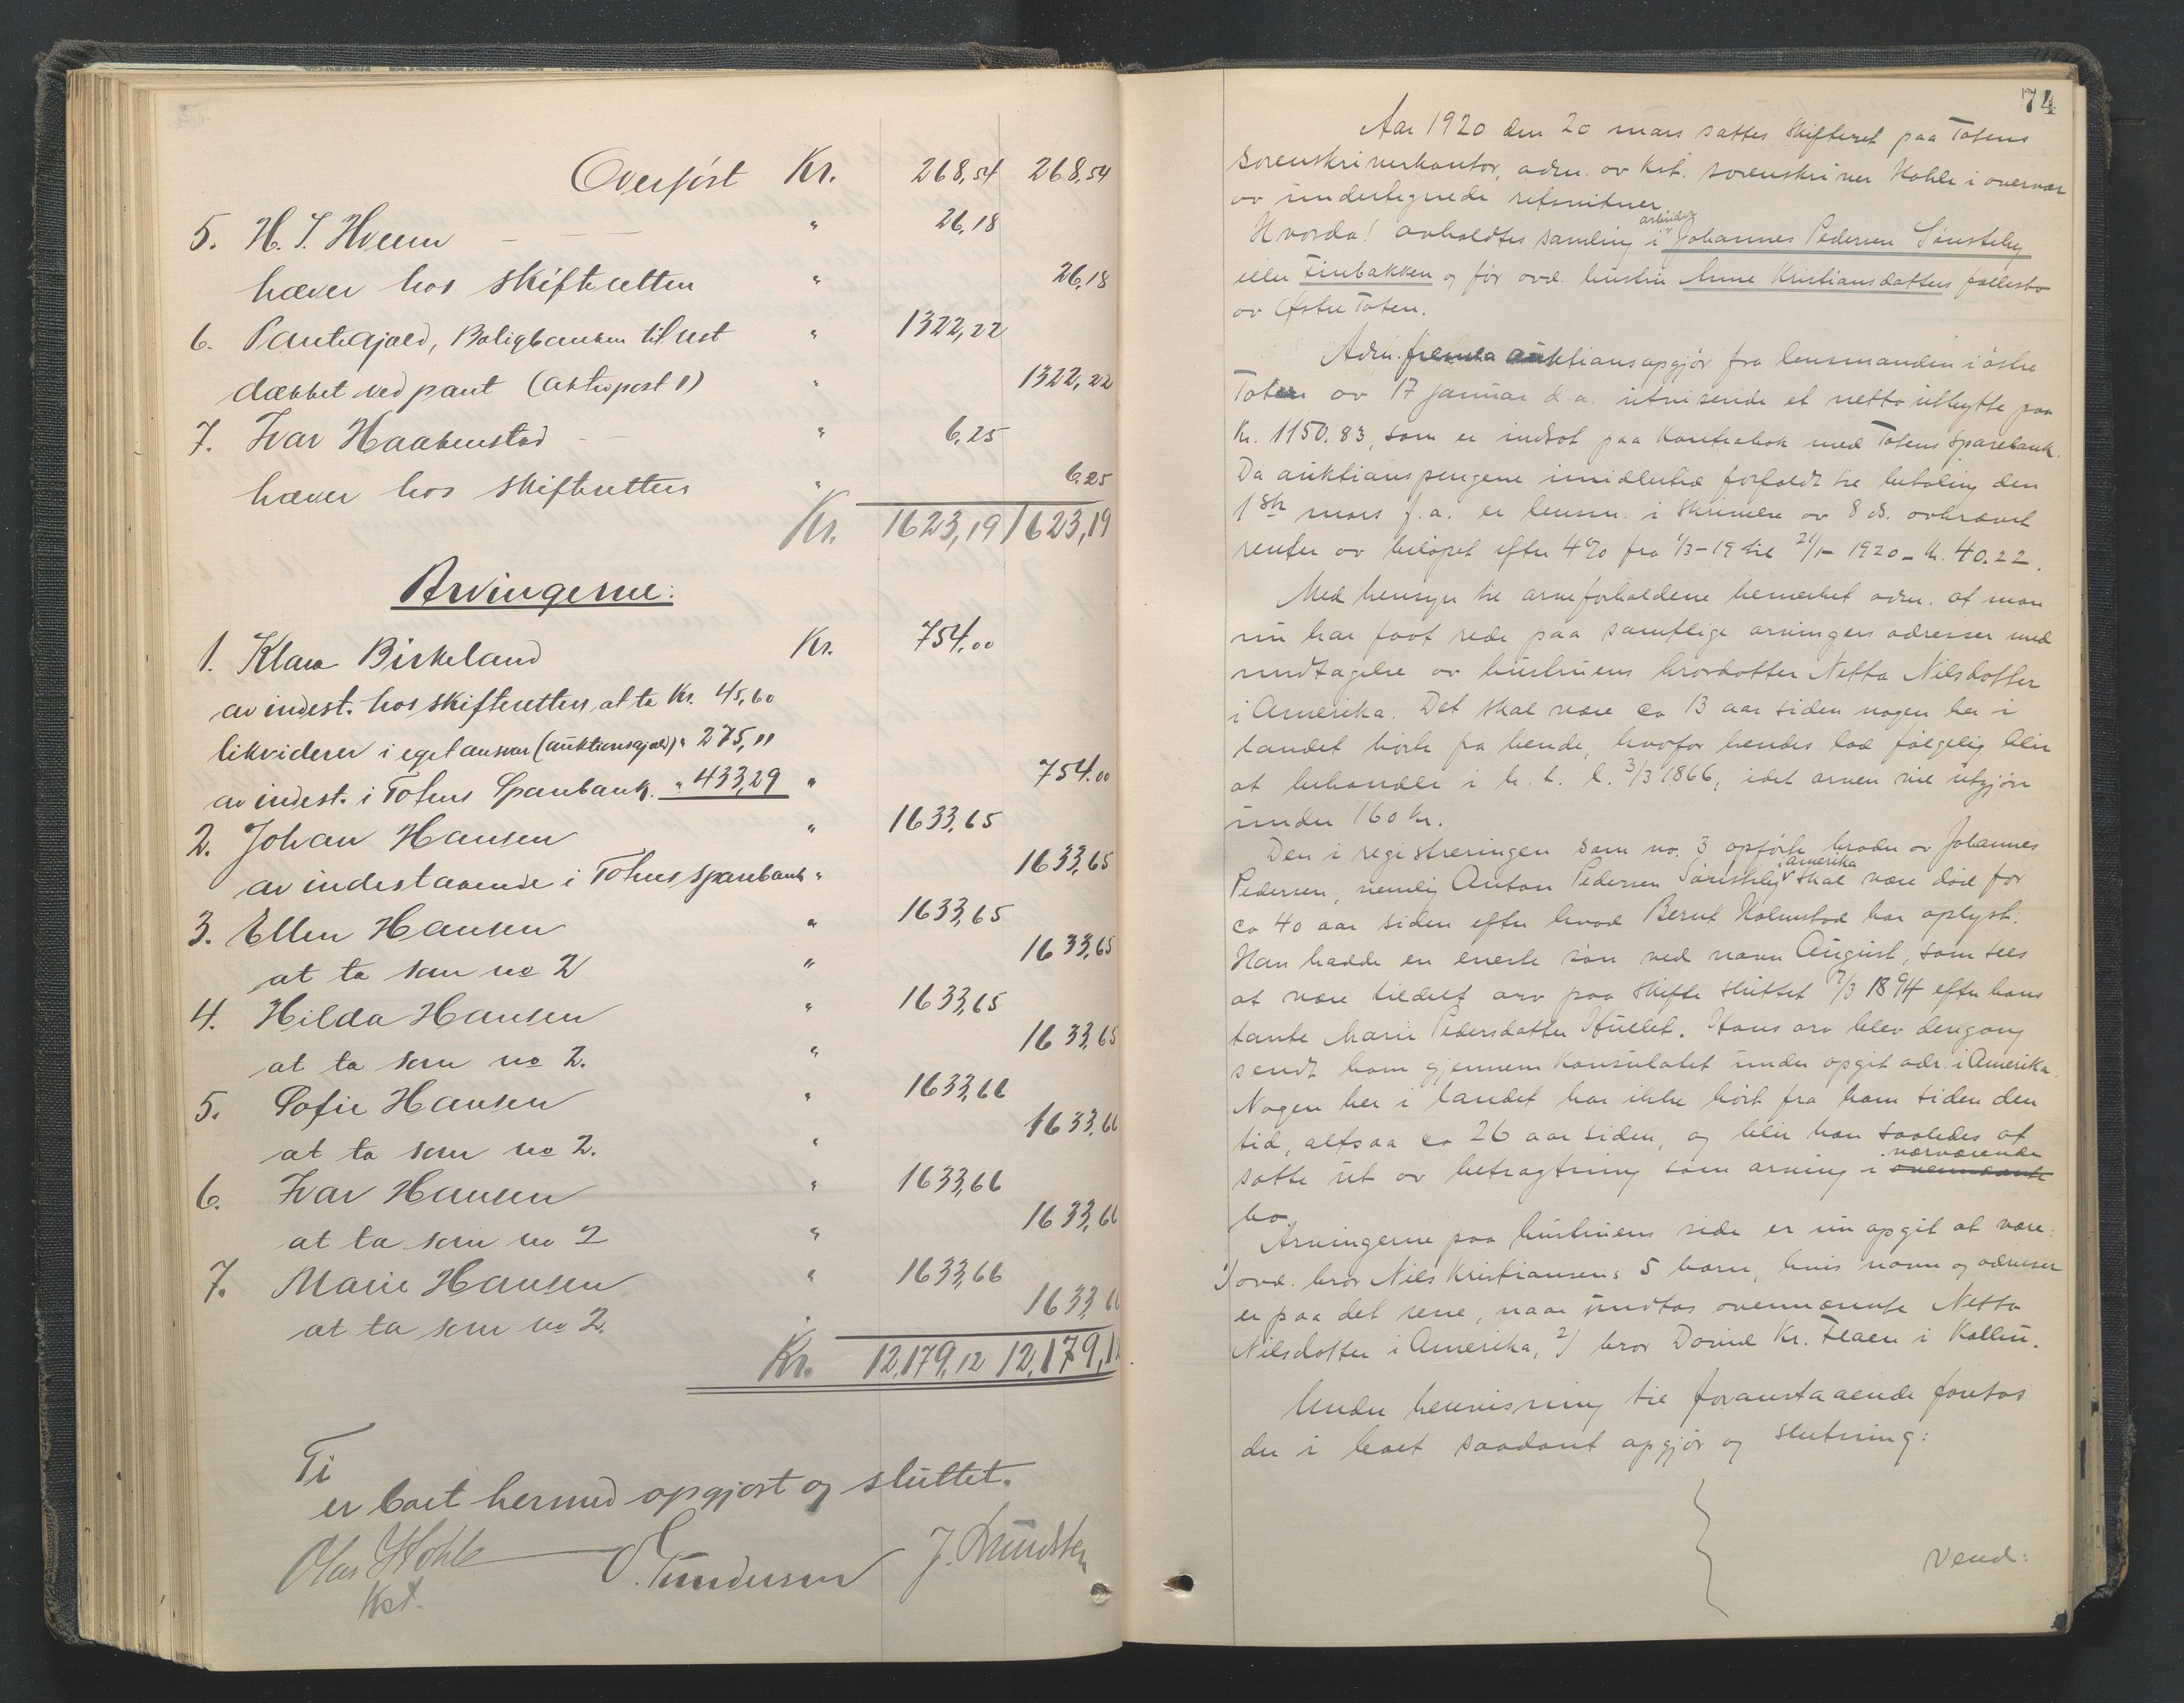 Overført Kr. 268,54 268,54
5. H. J. Hveem — — — " 26,18
hæver hos skifteretten " 26,18
6. Pantegjæld, Boligbanken til rest " 1322,22
dækket ved pant (aktivpost 1) " 1322,22
7. Ivar Haakenstad — " 6,25
hæver hos skifteretten " 6,25
Kr. 1623,19 1623,19
Arvingerne:
1. Klara Birkeland Kr. 754,00
av indest. hos skifteretten at ta Kr. 45,60
likviderer i eget ansvar (auktionsgjæld) " 275,11
av indest. i Totens Sparebank. " 433,29 " 754.00
2. Johan Hansen " 1633,65
av indestaaende i Totens sparebank " 1633,65
3. Ellen Hansen " 1633,65
at ta som no 2 " 1633,65
4. Hilda Hansen " 1633,65
at ta som no 2. " 1633,65
5. Sofie Hansen " 1633,66
at ta som no 2. " 1633,66
6. Ivar Hansen " 1633,66
at ta som no 2 " 1633,66
7. Marie Hansen " 1633,66
at ta som no 2. " 1633,66
Kr. 12,179,12 12,179,1
Ti
er boet hermed opgjort og sluttet.
Olav Hohle
Kst.
74
Aar 1920 den 20 mars sattes skifteret paa Totens
sorenskriverkontor, adm. av kst. sorenskriver Hohle i overvær
av undertegnede retsvitner.
Hvorda! avholdtes samling i arbeider Johannes Pedersen Sønsteby
eller Finbakken og før avd. hustru Anne Kristiansdatters fællesbo
av Østre Toten.
Adm. fremla auktionsopgjør fra lensmanden i østre
Toten av 17 januar d. a. utvisende et netto utbytte paa
Kr. 1150.83, som er indsat paa Kontrabok med Totens Sparebank.
Da auktionspengene imidlertid forfaldt til betaling den
1ste mars f. a. er lensm. i skrivelse av 8 ds. avkrævet
renter av beløpet efter 4% fra 1/3-19 til 21/1- 1920 - kr. 40.22.
Med hensyn til arveforholdene bemerket adm. at man
nu har faat rede paa samtlige arvingers adresser med
undtagelse av hustruens brordatter Netta Nilsdatter
i Amerika. Det skal være ca 13 aar siden nogen her i
landet hørte fra hende, hvorfor hendes lod følgelig blir
at behandle i h. t. l. 3/3 1866, idet arven vil utgjøre
under 160 kr.
Den i registreringen som no. 3 opførte broder av Johannes
Pedersen, nemlig Anton Pedersen Sønsteby i amerika skal være død for
ca 40 aar siden efter hvad Bernt Holmstad har oplyst.
Han hadde en eneste søn ved navn August, som sees
at være tildelt arv paa skifte sluttet 7/3 1894 efter hans
tante Marie Pedersdatter Hullet. Hans arv blev dengang
sendt ham gjennem konsulatet under opgit adr. i Amerika.
Nogen her i landet har ikke hørt fra ham siden den
tid, altsaa ca 26 aar siden, og blir han saaledes at
sætte ut av betragtning som arving i ovennævnte nærværende
bo.
Arvingerne paa hustruens side er nu opgit at være:
1) avd. bror Nils Kristiansens 5 barn, hvis navn og adresser
er paa det rene, naar undtas ovennævnte Netta
Nilsdatter i Amerika, 2) bror David Kr. Flaen i Kolbu.
Under henvisning til foranstaaende foretas
der i boet saadant opgjør og slutning:
Vend: